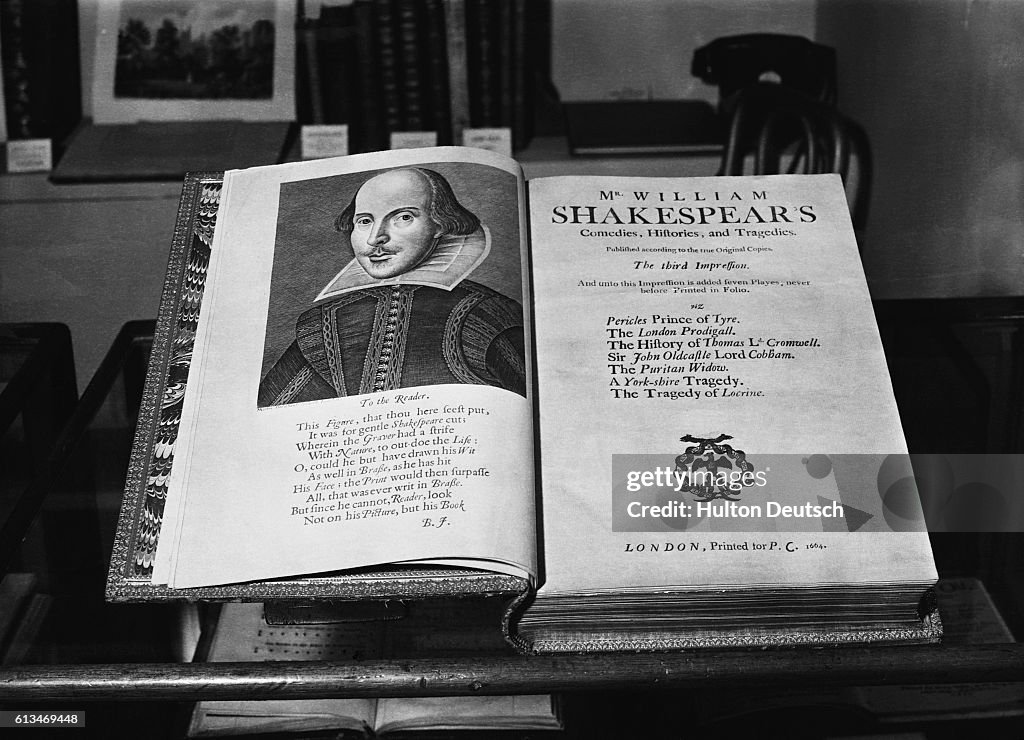 To the Reader.
This Figure, that thou here seeſt put,
It was for gentle Shakeſpeare cut;
Wherein the Graver had a ſtrife
With Nature, to out-doe the Life:
O, could he but have drawn his Wit
As well in Braſſe, as he has hit
His Face; the Print would then ſurpaſſe
All, that was ever writ in Braſſe.
But ſince he cannot, Reader, look
Not on his Picture, but his Book
B. J.
MR. WILLIAM
SHAKESPEAR'S
Comedies, Hiſtories, and Tragedies.
Publiſhed according to the true Original Copies.
The third Impreſſion.
And unto this Impreſſion is added ſeven Playes, never
before Printed in Folio.
viz
Pericles Prince of Tyre.
The London Prodigall.
The Hiſtory of Thomas Ld. Cromwell.
Sir John Oldcaſtle Lord Cobham.
The Puritan Widow.
A York-shire Tragedy.
The Tragedy of Locrine.
LONDON, Printed for P. C. 1664.
gettyimages
Hulton Deutsch
613469448